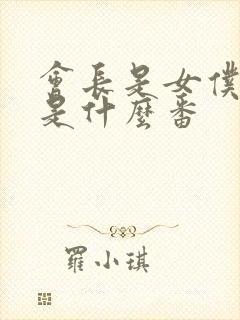 會長是女僕
是什麼番
羅小琪